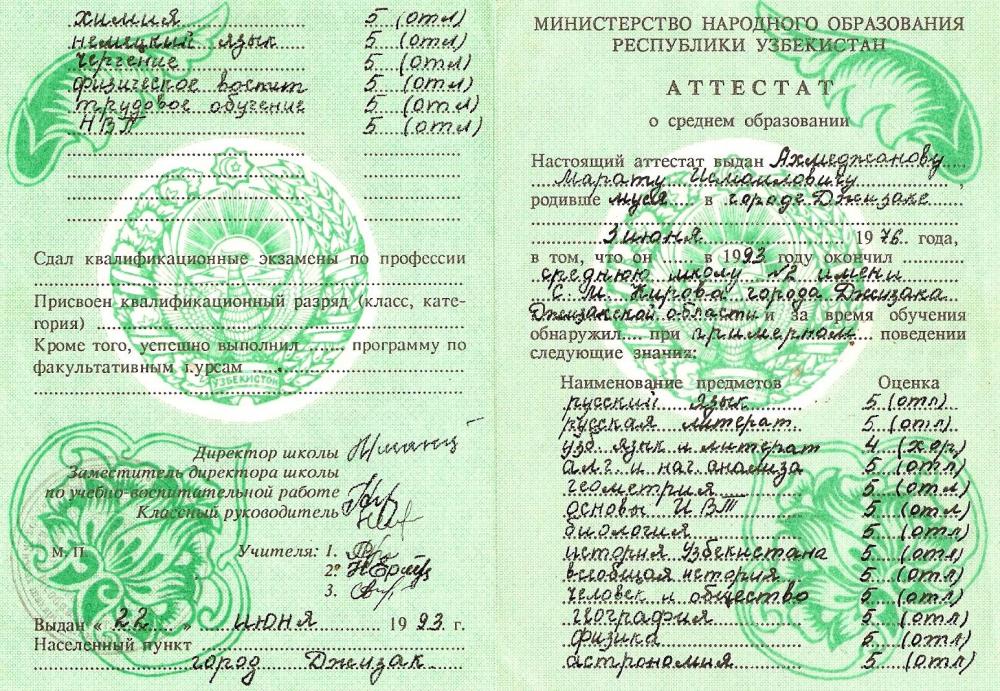 химия 5 (отл)
немецкий язык 5 (отл)
черчение 5 (отл)
физическое воспит 5 (отл)
трудовое обучение 5 (отл)
НВП 5 (отл)
Сдал квалификационные экзамены по профессии
Присвоен квалификационный разряд (класс, кате-
гория)
Кроме того, успешно выполнил программу по
факультативным курсам
УЗБЕКИСТОН
Директор школы
Заместитель директора школы
по учебно-воспитательной работе
Классный руководитель
М. П. Учителя: 1.
2.
3.
Выдан « 22 » июня 1993 г.
Населенный пункт
город Джизак
МИНИСТЕРСТВО НАРОДНОГО ОБРАЗОВАНИЯ
РЕСПУБЛИКИ УЗБЕКИСТАН
АТТЕСТАТ
о среднем образовании
Настоящий аттестат выдан Ахмеджанову
Марату Исмаиловичу ,
родивше муся в городе Джизаке
3 июня 1976 года,
в том, что он в 1993 году окончил
среднюю школу №2 имени
С. М. Кирова города Джизака
Джизакской области и за время обучения
обнаружил при примерном поведении
следующие знания:
Наименование предметов Оценка
русский язык 5 (отл)
русская литерат 5 (отл)
узб. язык и литерат 4 (хор)
алг и нач анализа 5 (отл)
геометрия 5 (отл)
основы ИВТ 5 (отл)
биология 5 (отл)
история Узбекистана 5 (отл)
всеобщая история 5 (отл)
человек и общество 5 (отл)
география 5 (отл)
физика 5 (отл)
астрономия 5 (отл)